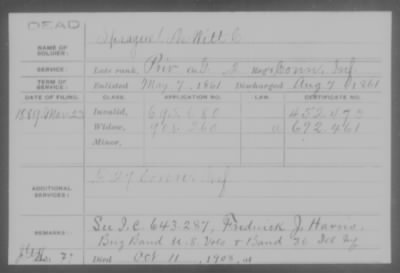 DEAD
NAME OF SOLDIER: Sprague, DeWitt C
SERVICE: Late rank, Priv Co. 2 Reg't Conn. Inf
TERM OF SERVICE: Enlisted May 7, 1861 Discharged Aug 7, 1861
DATE OF FILING. CLASS. APPLICATION NO. LAW. CERTIFICATE NO.
1889 Mar 23 Invalid, 695.680 452.473
Widow, 672.461
Minor,
ADDITIONAL SERVICES:
REMARKS: See I.C. 643.287, Fredrick J.
Band U.S. Vols & Band
Died Oct 11, 1908, at